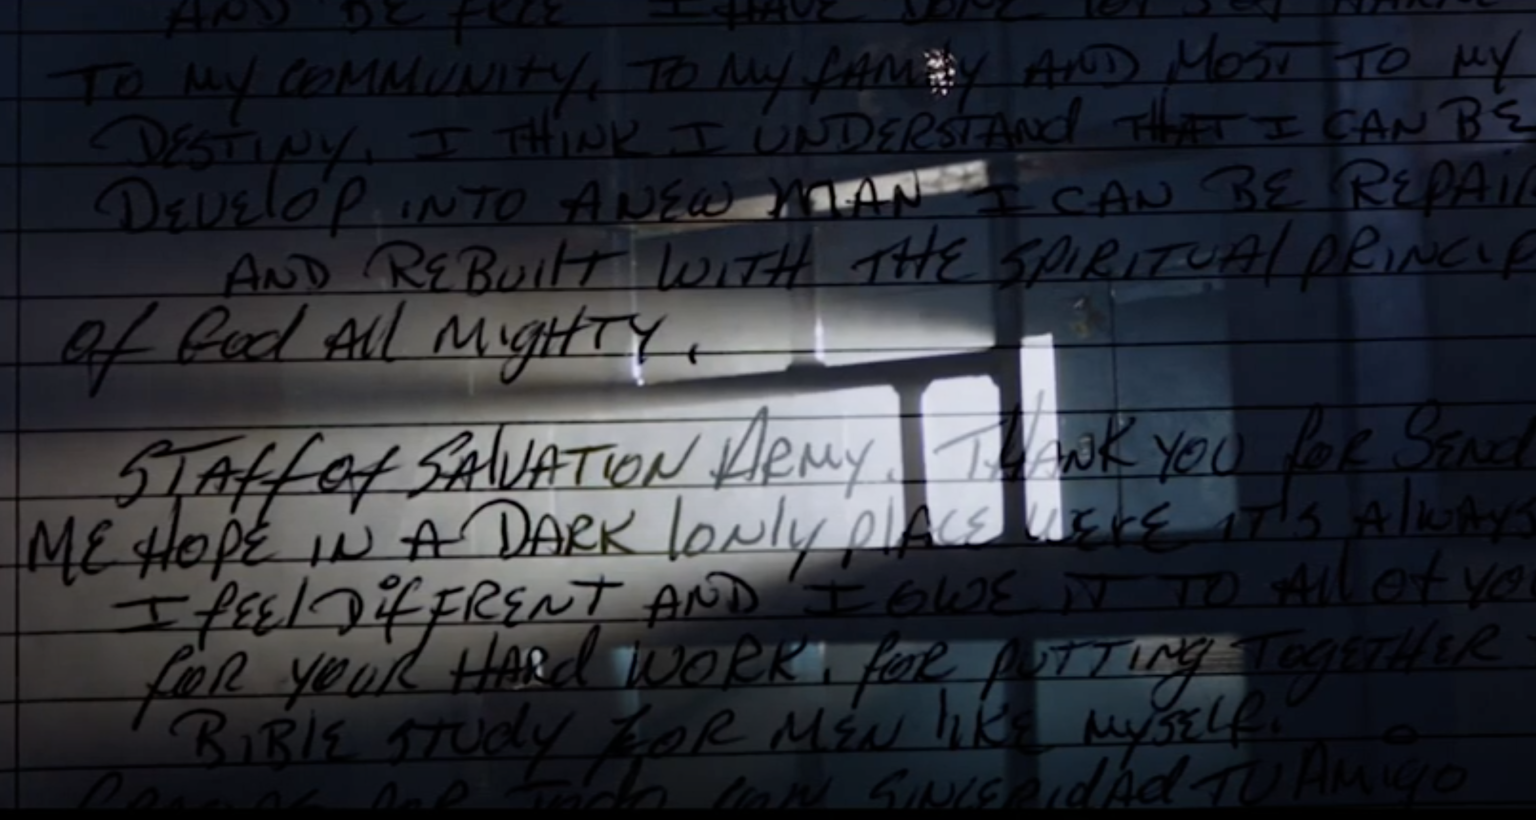 AND BE FREE I HAVE DONE
TO MY COMMUNITY, TO MY FAMILY AND MOST TO MY
DESTINY. I THINK I UNDERSTAND THAT I CAN BE
DEVELOP INTO A NEW MAN I CAN BE REPAI
AND REBUILT WITH THE SPIRITUAL PRINCIP
of God All MIGHTY.
STAFF of SALVATION ARMY. THANK YOU for SEND
ME HOPE IN A DARK lonly plACE WERE IT'S AlWAYS
I fEEl DiffRENT AND I OWE IT TO All of YO
for YOUR HARd WORK. for PUTTING TOGETHER
BIBlE STUdy FOR MEN likE MYSELF.
GRACIAS POR Todo CON SINCERIdAd TU AMIGO